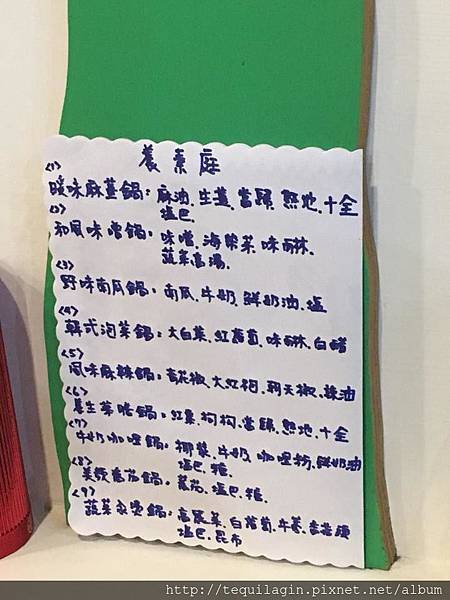 養素庭
<1>
暖味麻薑鍋：麻油、生薑、當歸、熟地、十全
塩巴
<2>
和風味噌鍋：味噌、海帶菜、味醂、
蔬菓高湯、
<3>
野味南瓜鍋：南瓜、牛奶、鮮奶油、塩
<4>
韓式泡菜鍋：大白菜、紅蘿蔔、味醂、白醋
<5>
風味麻辣鍋：青花椒、大紅袍、朝天椒、辣油
<6>
養生草嚐鍋：紅棗、枸杞、當歸、熟地、十全
<7>
牛奶咖哩鍋：椰漿、牛奶、咖哩粉、鮮奶油
塩巴、糖、
<8>
美顏番茄鍋：蕃茄、塩巴、糖、
<9>
蔬菜汆燙鍋：高麗菜、白蘿蔔、牛蒡、香菇頭
塩巴、昆布
http://tequilagin.pixnet.net/album